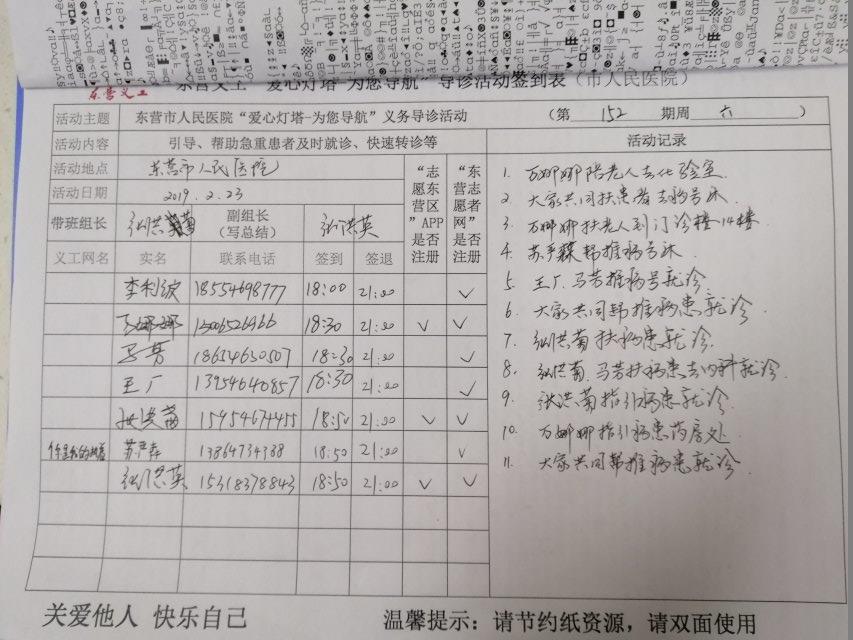 东营义工
东营义工“爱心灯塔-为您导航”导诊活动签到表（市人民医院）
活动主题 东营市人民医院“爱心灯塔-为您导航”义务导诊活动 （第 152 期周 六 ）
活动内容 引导、帮助急重患者及时就诊、快速转诊等 活动记录
活动地点 东营市人民医院
活动日期 2019.2.23
带班组长 张洪菊 副组长（写总结） 张洪英
“志愿东营区”APP是否注册
“东营志愿者网”是否注册
义工网名 实名 联系电话 签到 签退
李利波 18554698777 18:00 21:00 ✓
万娜娜 15006526966 18:30 21:00 ✓ ✓
马芳 18654630507 18:30 21:00 ✓
王广 13954640857 18:30 21:00 ✓
张洪菊 15954674455 18:50 21:00 ✓ ✓
苏严森 13864734388 18:50 21:00 ✓
张洪英 15318378843 18:50 21:00 ✓ ✓
1. 万娜娜陪老人去化验室
2. 大家共同扶患者去病号床
3. 万娜娜扶老人到门诊楼14楼
4. 苏严森帮推病号床
5. 王广.马芳推病号就诊
6. 大家共同帮推病患就诊
7. 张洪菊扶病患就诊
8. 张洪菊.马芳扶病患去内科就诊
9. 张洪菊指引病患就诊
10. 万娜娜指引病患药房处
11. 大家共同帮推病患就诊
关爱他人 快乐自己 温馨提示：请节约纸资源，请双面使用